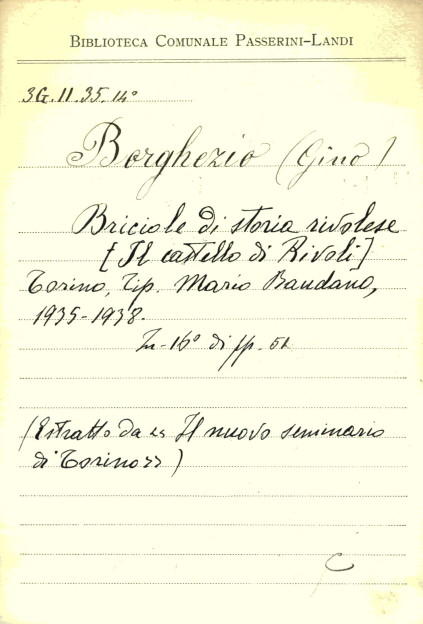 BIBLIOTECA COMUNALE PASSERINI-LANDI
3G.II.35.14°
Borghezio (Gino)
Briciole di storia rivolese
[Il castello di Rivoli]
Torino, Tip. Mario Baudano,
1935-1938.
In-16° di pp. 51
(Estratto da "Il nuovo seminario
di Torino")
C